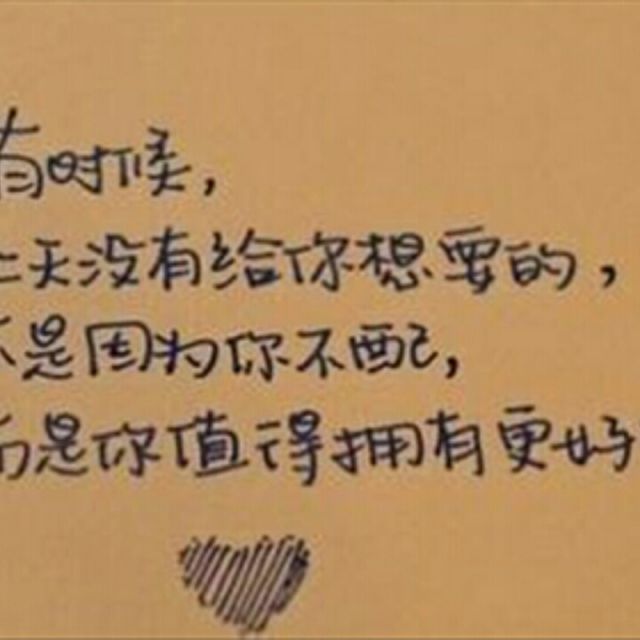 有时候，
上天没有给你想要的，
不是因为你不配，
而是你值得拥有更好